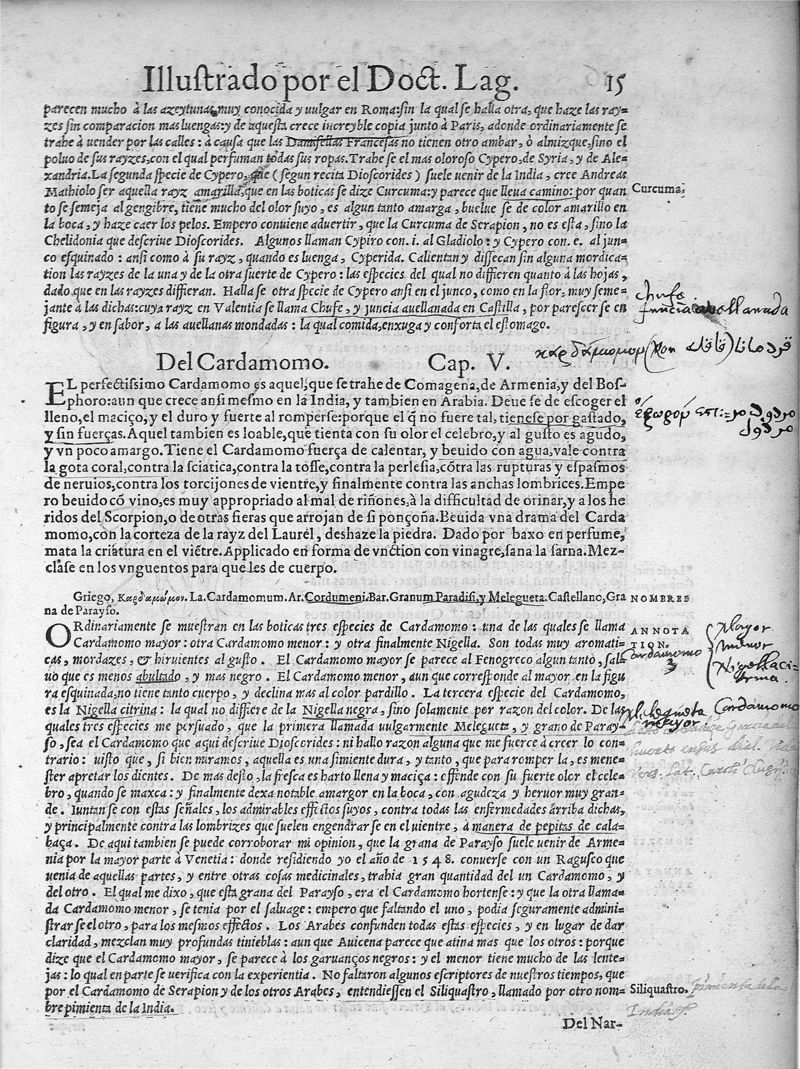 Illustrado por el Doct. Lag. 15
parecen mucho à las azeytunas, muy conocida y uulgar en Roma: sin la qual se halla otra, que haze las ray=
zes sin comparacion mas luengas: y de aquesta crece increyble copia junto à Paris, adonde ordinariamente se
trahe à uender por las calles: à causa que las Damisellas Francesas no tienen otro ambar, ò almizque, sino el
poluo de sus rayzes, con el qual perfuman todas sus ropas. Trahe se el mas oloroso Cypero, de Syria, y de Ale=
xandria. La segunda specie de Cypero, que (segun recita Dioscorides) suele uenir de la India, cree Andreas
Mathiolo ser aquella rayz amarilla, que en las boticas se dize Curcuma: y parece que lleua camino: por quan
Curcuma,
to se semeja al gengibre, tiene mucho del olor suyo, es algun tanto amarga, buelue se de color amarillo en
la boca, y haze caer los pelos. Empero conuiene aduertir, que la Curcuma de Serapion, no es esta, sino la
Chelidonia que descriue Dioscorides. Algunos llaman Cypiro con. i. al Gladiolo: y Cypero con. e. al jun=
co esquinado: ansi como à su rayz, quando es luenga, Cyperida. Calientan y dissecan sin alguna mordica=
tion las rayzes de la una y de la otra suerte de Cypero: las especies del qual no differen quanto à las hojas,
dado que en las rayzes differan. Halla se otra specie de Cypero ansi en el junco, como en la flor, muy seme=
jante à las dichas: cuya rayz en Valentia se llama Chufe, y juncia auellanada en Castilla, por parescer se en
chufe.
juncia abellanada
figura, y en sabor, a las auellanas mondadas: la qual comida, enxuga y conforta el estomago.
Del Cardamomo. Cap. V.
EL perfectissimo Cardamomo es aquel, que se trahe de Comagena, de Armenia, y del Bos-
phoro: aun que crece ansi mesmo en la India, y tambien en Arabia. Deue se de escoger el
lleno, el maciço, y el duro y fuerte al romperse: porque el q̃ no fuere tal, tienese por gastado,
y sin fuerças. Aquel tambien es loable, que tienta con su olor el celebro, y al gusto es agudo,
y vn poco amargo. Tiene el Cardamomo fuerça de calentar, y beuido con agua, vale contra
la gota coral, contra la sciatica, contra la tosse, contra la perlesia, cõtra las rupturas y espasmos
de neruios, contra los torcijones de vientre, y finalmente contra las anchas lombrices. Empe
ro beuido cõ vino, es muy appropriado al mal de riñones, à la difficultad de orinar, y a los he
ridos del Scorpion, o de otras fieras que arrojan de si ponçoña. Beuida vna drama del Carda
momo, con la corteza de la rayz del Laurel, deshaze la piedra. Dado por baxo en perfume,
mata la criatura en el viẽtre. Applicado en forma de vnction con vinagre, sana la sarna. Mez-
clase en los vnguentos para que les de cuerpo.
Griego, Καρδαμώμον. La. Cardamomum. Ar. Cordumeni. Bar. Granum Paradisi, y Melegueta. Castellano, Gra
NOMBRES
na de Parayso.
ORdinariamente se muestran en las boticas tres especies de Cardamomo: una de las quales se llama
ANNOTA
TION.
Cardamomo mayor: otra Cardamomo menor: y otra finalmente Nigella. Son todas muy aromati=
cas, mordazes, & hiruientes al gusto. El Cardamomo mayor se parece al Fenogreco algun tanto, sal=
Cardamomo
Mayor
menor
uo que es menos abultado, y mas negro. El Cardamomo menor, aun que corresponde al mayor en la figu
ra esquinada, no tiene tanto cuerpo, y declina mas al color pardillo. La tercera especie del Cardamomo,
es la Nigella citrina: la qual no differe de la Nigella negra, sino solamente por razon del color. De las
Melegueta Cardamomo
mayor
quales tres especies me persuado, que la primera llamada uulgarmente Melegueta, y grano de Paray=
so, sea el Cardamomo que aqui descriue Dioscorides: ni hallo razon alguna que me fuerce à creer lo con=
trario: uisto que, si bien miramos, aquella es una simiente dura, y tanto, que para romper la, es mene=
ster apretar los dientes. De mas desto, la fresca es harto llena y maciça: offende con su fuerte olor el cele=
bro, quando se maxca: y finalmente dexa notable amargor en la boca, con agudeza y heruor muy gran=
de. Iuntan se con estas señales, los admirables effectos suyos, contra todas las enfermedades arriba dichas,
y principalmente contra las lombrizes que suelen engendrar se en el uientre, à manera de pepitas de cala=
baça. De aqui tambien se puede corroborar mi opinion, que la grana de Parayso suele uenir de Arme=
nia por la mayor parte à Venetia: donde residiendo yo el año de 1548. conuerse con un Raguseo que
uenia de aquellas partes, y entre otras cosas medicinales, trahia gran quantidad del un Cardamomo, y
del otro. El qual me dixo, que esta grana del Parayso, era el Cardamomo hortense: y que la otra llama=
da Cardamomo menor, se tenia por el saluage: empero que faltando el uno, podia seguramente admini=
strar se el otro, para los mesmos effectos. Los Arabes confunden todas estas especies, y en lugar de dar
claridad, mezclan muy profundas tinieblas: aun que Auicena parece que atina mas que los otros: porque
dize que el Cardamomo mayor, se parece à los garuanços negros: y el menor tiene mucho de las lente=
jas: lo qual en parte se uerifica con la experientia. No faltaron algunos escriptores de nuestros tiempos, que
por el Cardamomo de Serapion y de los otros Arabes, entendiessen el Siliquastro, llamado por otro nom=
Siliquastro.
pimienta de la
India
bre pimienta de la India.
Del Nar-